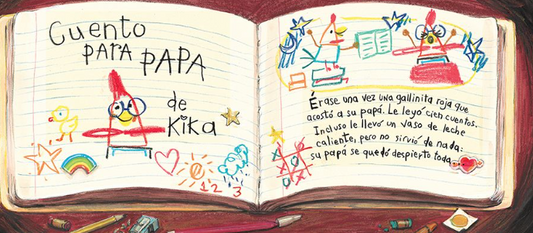 Cuento
PARA PAPA
de
Kika
1 2 3
Érase una vez una gallinita roja que
acostó a su papá. Le leyó cien cuentos.
Incluso le llevó un vaso de leche
caliente, pero no sirvió de nada:
su papá se quedó despierto toda